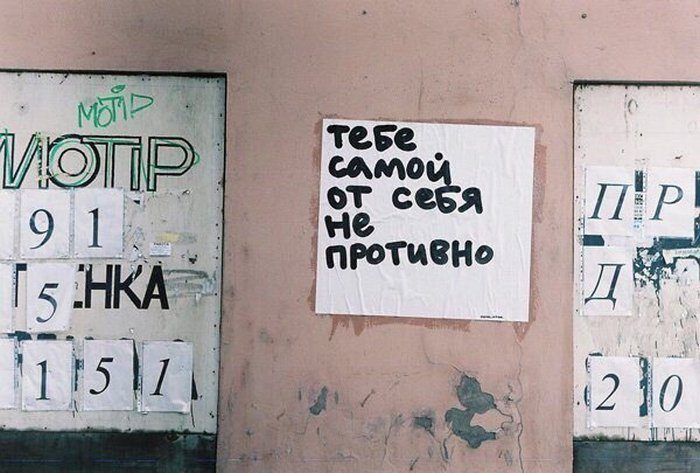 MOTIP
MOTIP
91
5
ЕНКА
151
ТЕБЕ
САМОЙ
ОТ СЕБЯ
НЕ
ПРОТИВНО
ПР
Д
20